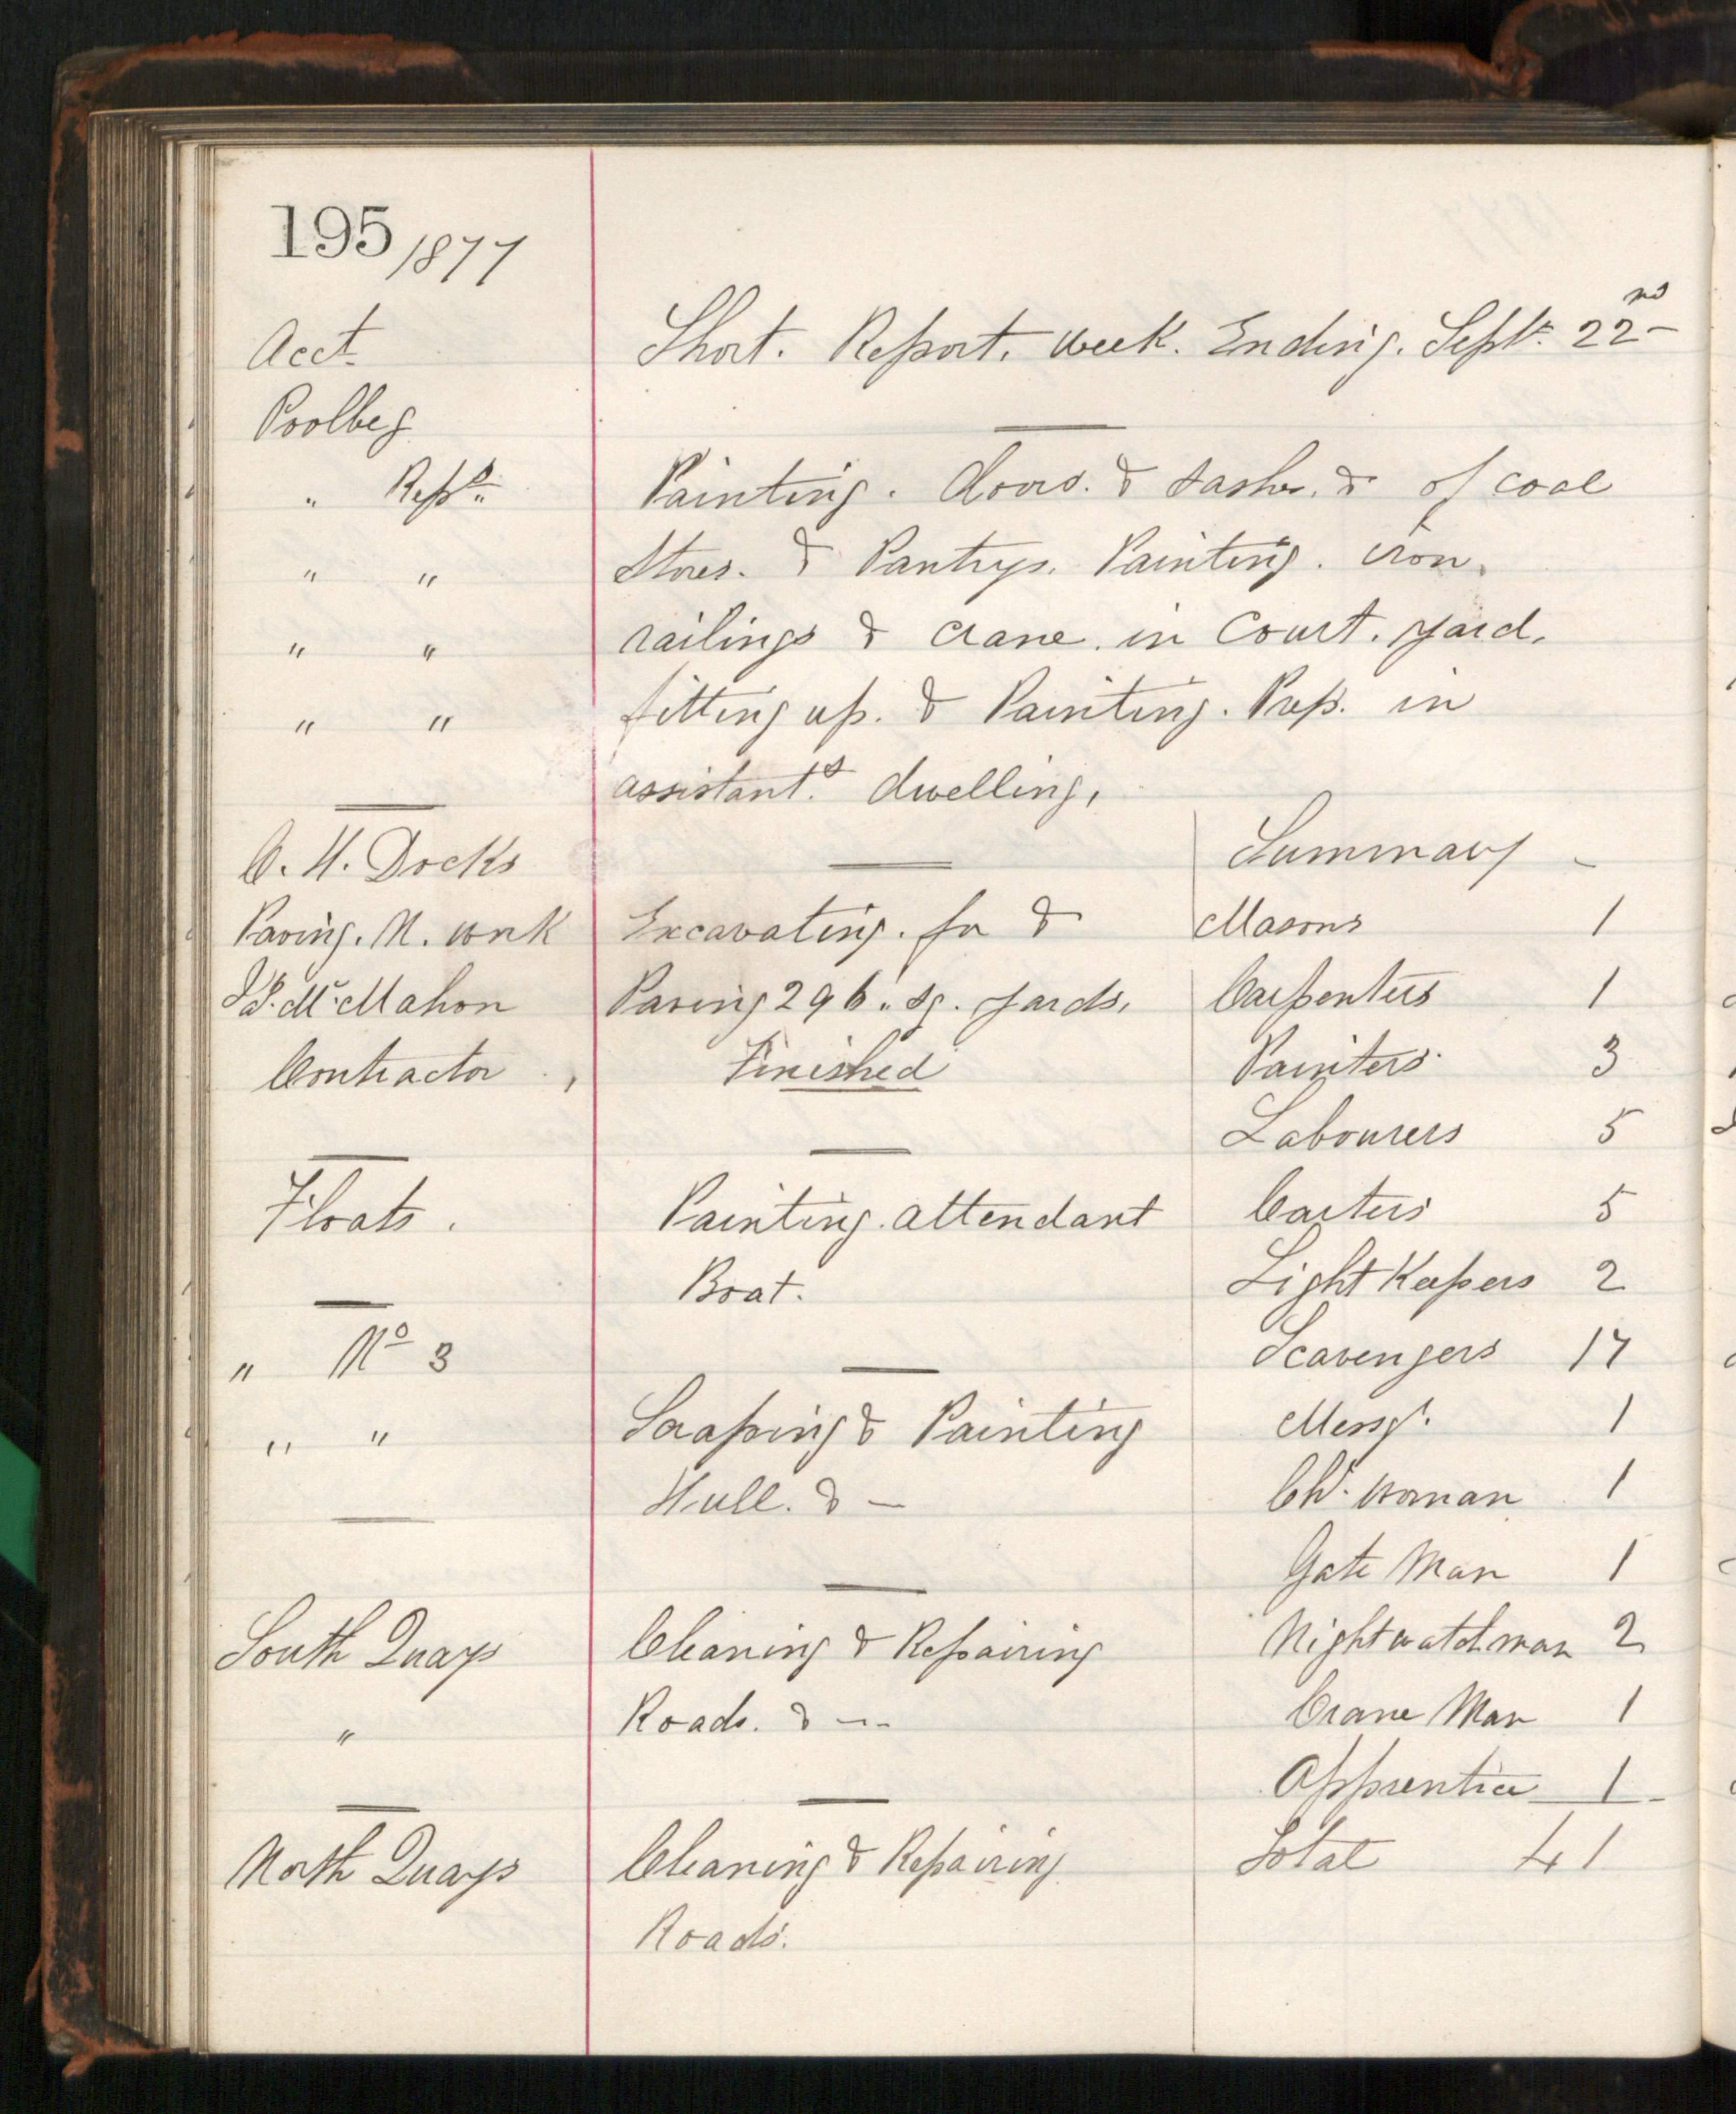 195/1877
Acct.
Short. Report. week. Ending. Septr. 22nd
Poolbeg
" Reprs. Painting. doors. & sashes. & of coal
" " Stores. & Pantrys. Painting. iron.
" " railings & crane. in Court. yard.
" " fitting up. & Painting. Prep. in
assistants. dwelling,
C. H. Docks
Paving. N. work Excavating. for &
McMahon Paving 296. sq. yards.
Contractor, Finished
Floats. Painting. attendant
Boat.
" No 3
" " Scraping & Painting
Hull. & —
South Quays Cleaning & Repairing
" Roads. & —
North Quays Cleaning & Repairing
Roads.
Summary
Masons 1
Carpenters 1
Painters 3
Labourers 5
Carters 5
Light Keepers 2
Scavengers 17
Messgr. 1
Chr. woman 1
Gate Man 1
Nightwatchman 2
Crane Man 1
Apprentice 1
Total 41